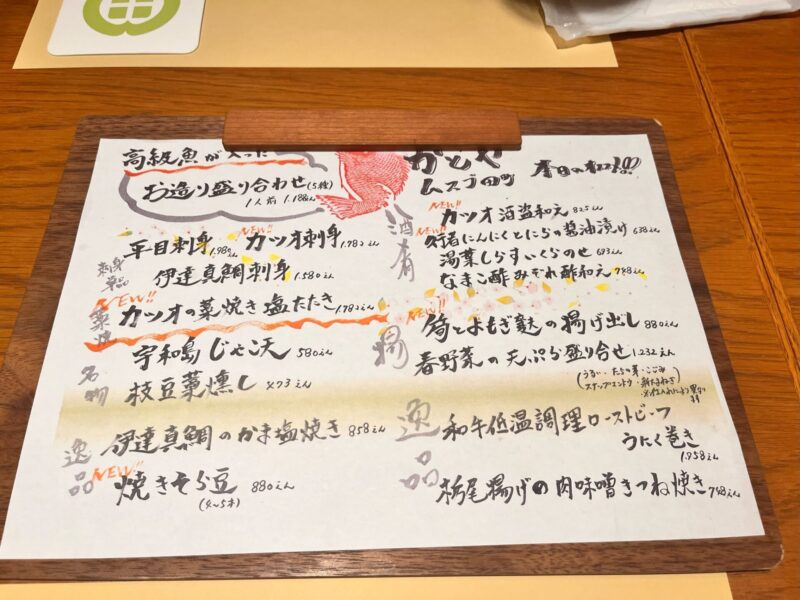 高級魚が入った
お造り盛り合わせ(5種)
1人前 1.188えん
刺身単品
平目刺身
NEW!!
カツオ刺身 1.782えん
伊達真鯛刺身 1.580えん
藁焼
NEW!!
カツオの藁焼き塩たたき 1.782えん
名物
宇和島じゃこ天 580えん
枝豆藁燻し 473えん
逸品
伊達真鯛のかま塩焼き 858えん
NEW!!
焼きそら豆 880えん
(4~5本)
かどや
ムスブ田町
本日の
酒肴
NEW!!
カツオ酒盗和え 825えん
NEW!!
行者にんにくとにらの醤油漬け 638えん
湯葉しらすいくらのせ 693えん
なまこ酢みぞれ酢和え 748えん
揚
NEW!!
筍とよもぎ麩の揚げ出し 880えん
春野菜の天ぷら盛り合せ 1.232えん
(うるい・たらの芽・こごみ
逸品
和牛低温調理ローストビーフ
うにく巻き
1.958えん
栃尾揚げの肉味噌きつね焼き 748えん